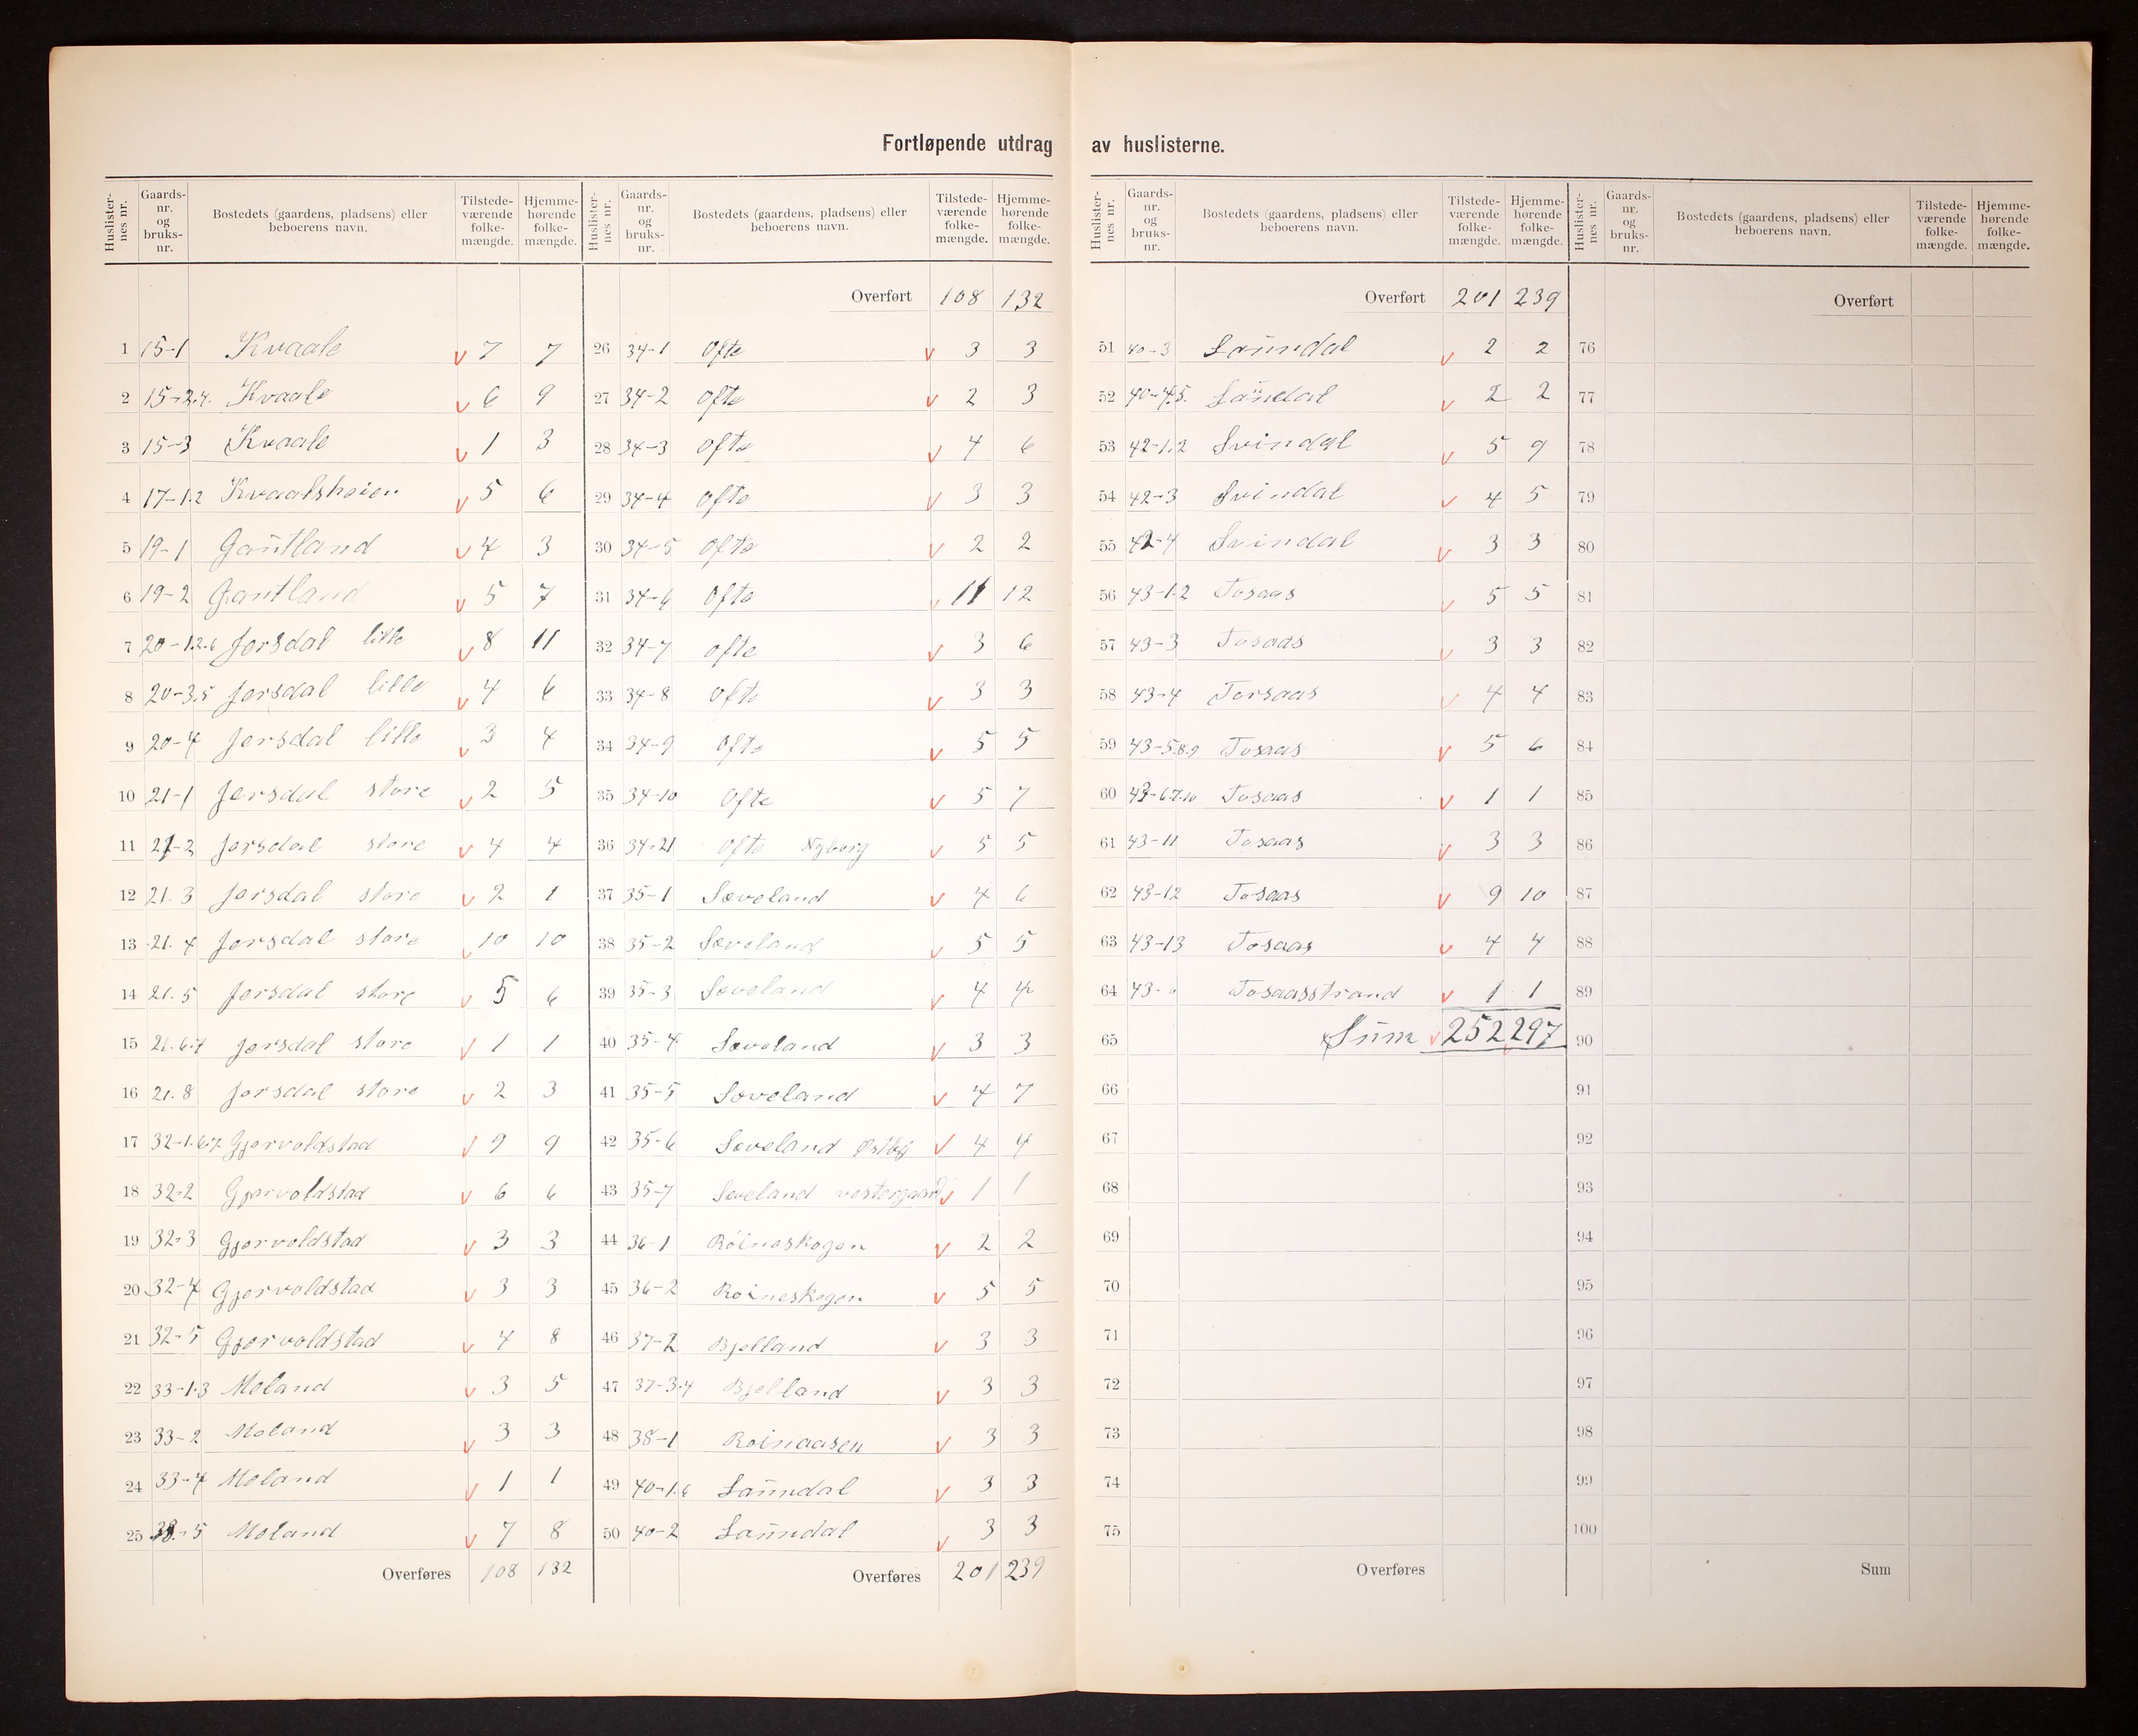 Fortløpende utdrag av huslisterne.
Huslisternes nr. Gaards-nr. og bruks-nr. Bostedets (gaardens, pladsens) eller beboerens navn. Tilstede-værende folke-mængde. Hjemme-hørende folke-mængde.
1 15-1 Kvaale v 7 7
2 15-2.4. Kvaale v 6 9
3 15-3 Kvaale v 1 3
4 17-1.2 Kvaalsheien v 5 6
5 19-1 Gautland v 4 3
6 19-2 Gautland v 5 7
7 20-1.2.6 Jersdal lille v 8 11
8 20-3.5 Jersdal lille v 4 6
9 20-4 Jersdal lille v 3 4
10 21-1 Jersdal store v 2 5
11 21-2 Jersdal store v 4 4
12 21.3 Jersdal store v 2 1
13 21.4 Jersdal store v 10 10
14 21.5 Jersdal store v 5 6
15 21.6.7 Jersdal store v 1 1
16 21.8 Jersdal store v 2 3
17 32-1.6.7 Gjervoldstad v 9 9
18 32-2 Gjervoldstad v 6 6
19 32-3 Gjervoldstad v 3 3
20 32-4 Gjervoldstad v 3 3
21 32-5 Gjervoldstad v 4 8
22 33-1.3 Moland v 3 5
23 33-2 Moland v 3 3
24 33-4 Moland v 1 1
25 33-5 Moland v 7 8
Overføres 108 132
Huslisternes nr. Gaards-nr. og bruks-nr. Bostedets (gaardens, pladsens) eller beboerens navn. Tilstede-værende folke-mængde. Hjemme-hørende folke-mængde.
Overført 108 132
26 34-1 Ofte v 3 3
27 34-2 Ofte v 2 3
28 34-3 Ofte v 4 6
29 34-4 Ofte v 3 3
30 34-5 Ofte v 2 2
31 34-6 Ofte v 11 12
32 34-7 Ofte v 3 6
33 34-8 Ofte v 3 3
34 34-9 Ofte v 5 5
35 34-10 Ofte v 5 7
36 34-21 Ofte Nyborg v 5 5
37 35-1 Søveland v 4 6
38 35-2 Søveland v 5 5
39 35-3 Søveland v 4 4
40 35-4 Søveland v 3 3
41 35-5 Søveland v 4 7
42 35-6 Søveland Østby v 4 4
43 35-7 Søveland vestergaard v 1 1
44 36-1 Röineskogen v 2 2
45 36-2 Röineskogen v 5 5
46 37-2 Bjelland v 3 3
47 37-3.4 Bjelland v 3 3
48 38-1 Roinaasen v 3 3
49 40-1.6 Laundal v 3 3
50 40-2 Laundal v 3 3
Overføres 201 239
Huslisternes nr. Gaards-nr. og bruks-nr. Bostedets (gaardens, pladsens) eller beboerens navn. Tilstede-værende folke-mængde. Hjemme-hørende folke-mængde.
Overført 201 239
51 40-3 Laundal v 2 2
52 40-4.5. Laudal v 2 2
53 42-1.2 Svindal v 5 9
54 42-3 Svindal v 4 5
55 42-4 Svindal v 3 3
56 43-1.2 Tosaas v 5 5
57 43-3 Tosaas v 3 3
58 43-4 Torsaas v 4 4
59 43-5.8.9 Tosaas v 5 6
60 43-6.7.10 Tosaas v 1 1
61 43-11 Tosaas v 3 3
62 43-12 Tosaas v 9 10
63 43-13 Tosaas v 4 4
64 43- Tosaasstrand v 1 1
65 Sum v 252 297
66
67
68
69
70
71
72
73
74
75
Overføres
Huslisternes nr. Gaards-nr. og bruks-nr. Bostedets (gaardens, pladsens) eller beboerens navn. Tilstede-værende folke-mængde. Hjemme-hørende folke-mængde.
Overført
76
77
78
79
80
81
82
83
84
85
86
87
88
89
90
91
92
93
94
95
96
97
98
99
100
Sum